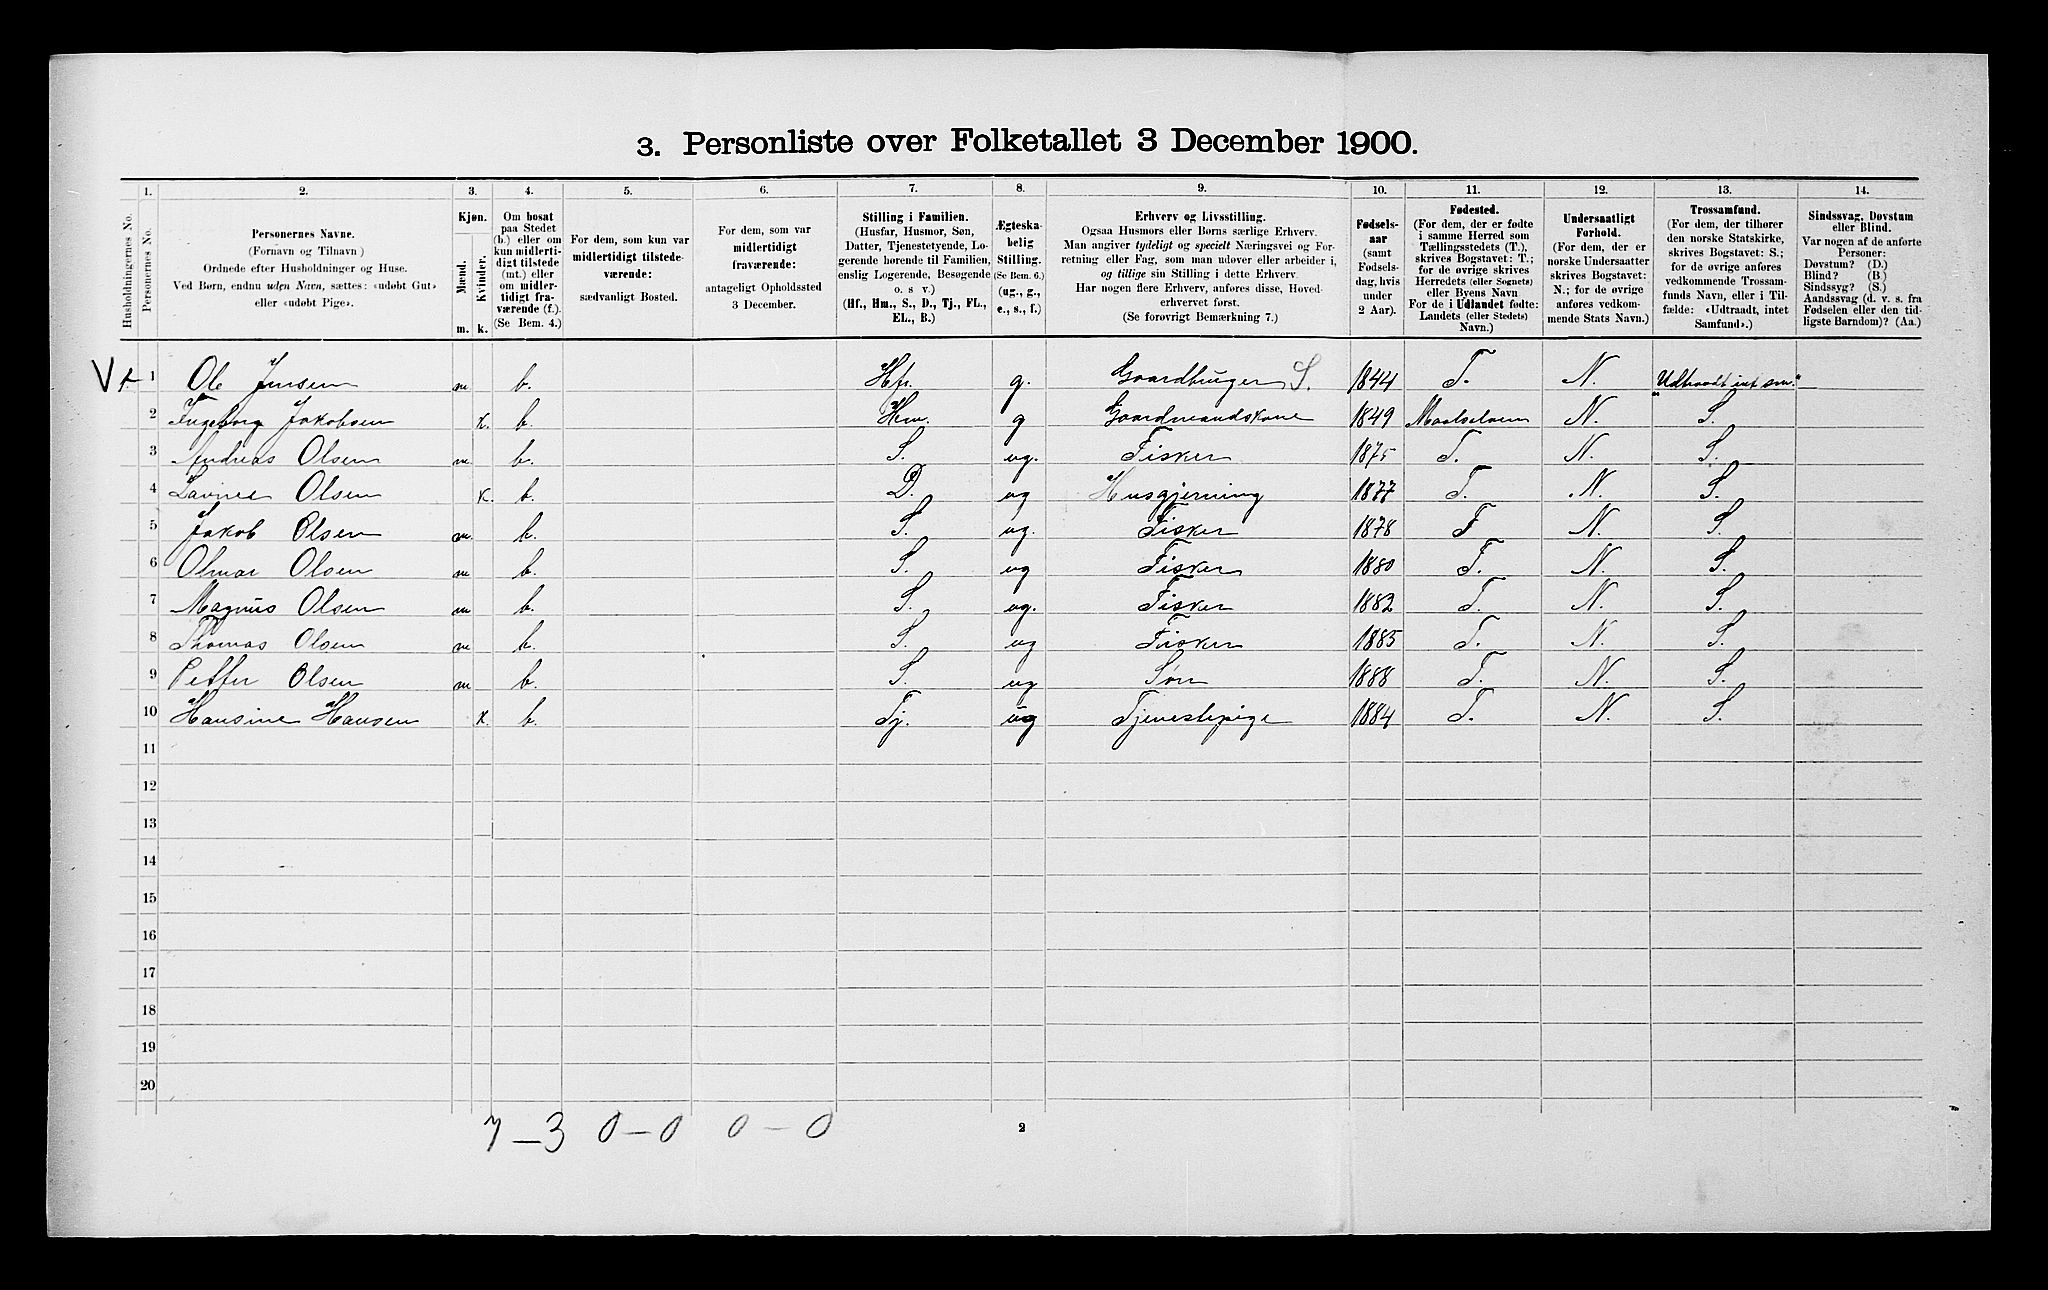 3. Personliste over Folketallet 3 December 1900.
1. 2. 3. 4. 5. 6. 7. 8. 9. 10. 11. 12. 13. 14.
Husholdningernes No.
Personernes No.
Personernes Navne.
(Fornavn og Tilnavn)
Ordnede efter Husholdninger og Huse.
Ved Børn, endnu uden Navn, sættes: «udøbt Gut»
eller «udøbt Pige».
Kjøn.
Mænd.
Kvinder.
m. k.
Om bosat
paa Stedet
(b.) eller om
kun midlerti-
digt tilstede
(mt.) eller
om midler-
tidigt fra-
værende (f.).
(Se Bem. 4.)
For dem, som kun var
midlertidigt tilstede-
værende:
sædvanligt Bosted.
For dem, som var
midlertidigt
fraværende:
antageligt Opholdssted
3 December.
Stilling i Familien.
(Husfar, Husmor, Søn,
Datter, Tjenestetyende, Lo-
gerende hørende til Familien,
enslig Logerende, Besøgende
o. s v.)
(Hf., Hm., S., D., Tj., FL.,
EL., B.)
Ægteska-
belig
Stilling.
(Se Bem. 6.)
(ug., g.,
e., s., f.)
Erhverv og Livsstilling.
Ogsaa Husmors eller Børns særlige Erhverv.
Man angiver tydeligt og specielt Næringsvei og For-
retning eller Fag, som man udøver eller arbeider i,
og tillige sin Stilling i dette Erhverv.
Har nogen flere Erhverv, anføres disse, Hoved-
erhvervet først.
(Se forøvrigt Bemærkning 7.)
Fødsels-
aar
(samt
Fødsels-
dag, hvis
under
2 Aar).
Fødested.
(For dem, der er fødte
i samme Herred som
Tællingsstedets (T.),
skrives Bogstavet: T.;
for de øvrige skrives
Herredets (eller Sognets)
eller Byens Navn
For de i Udlandet fødte:
Landets (eller Stedets)
Navn.)
Undersaatligt
Forhold.
(For dem, der er
norske Undersaatter
skrives Bogstavet:
N.; for de øvrige
anføres vedkom-
mende Stats Navn.)
Trossamfund.
(For dem, der tilhører
den norske Statskirke,
skrives Bogstavet: S.;
for de øvrige anføres
vedkommende Trossam-
funds Navn, eller i Til-
fælde: «Udtraadt, intet
Samfund».)
Sindssvag, Døvstum
eller Blind.
Var nogen af de anførte
Personer:
Døvstum? (D.)
Blind? (B.)
Sindssyg? (S.)
Aandssvag (d. v. s. fra
Fødselen eller den tid-
ligste Barndom)? (Aa.)
V 1 Ole Jensen m b. Hf. g. Gaardbruger S. 1844 T. N. "Udtraadt int sm."
2 Ingeborg Jakobsen k. b. Hm. g Gaardmandskone 1849 Maalselven N. S.
3 Andreas Olsen m. b. S. ug. Fisker 1875 T. N. S.
4 Lavine Olsen k. b. D. ug Husgjerning 1877 T. N. S.
5 Jakob Olsen m. b. S. ug. Fisker 1878 T N. S.
6 Olmar Olsen m b. S. ug Fisker 1880 T. N. S.
7 Magnus Olsen m b. S. ug. Fisker 1882 T. N. S.
8 Thomas Olsen m b. S. ug Fisker 1885 T. N. S.
9 Petter Olsen m b. S. ug Søn 1888 T. N. S.
10 Hansine Hansen k. b. Tj. ug Tjenestepige 1884 T. N. S.
11
12
13
14
15
16
17
18
19
20
7 – 3 0 – 0 0 – 0 2